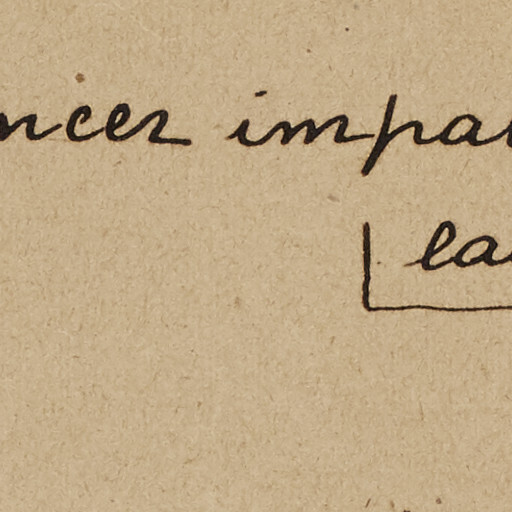 ncer impa
ea